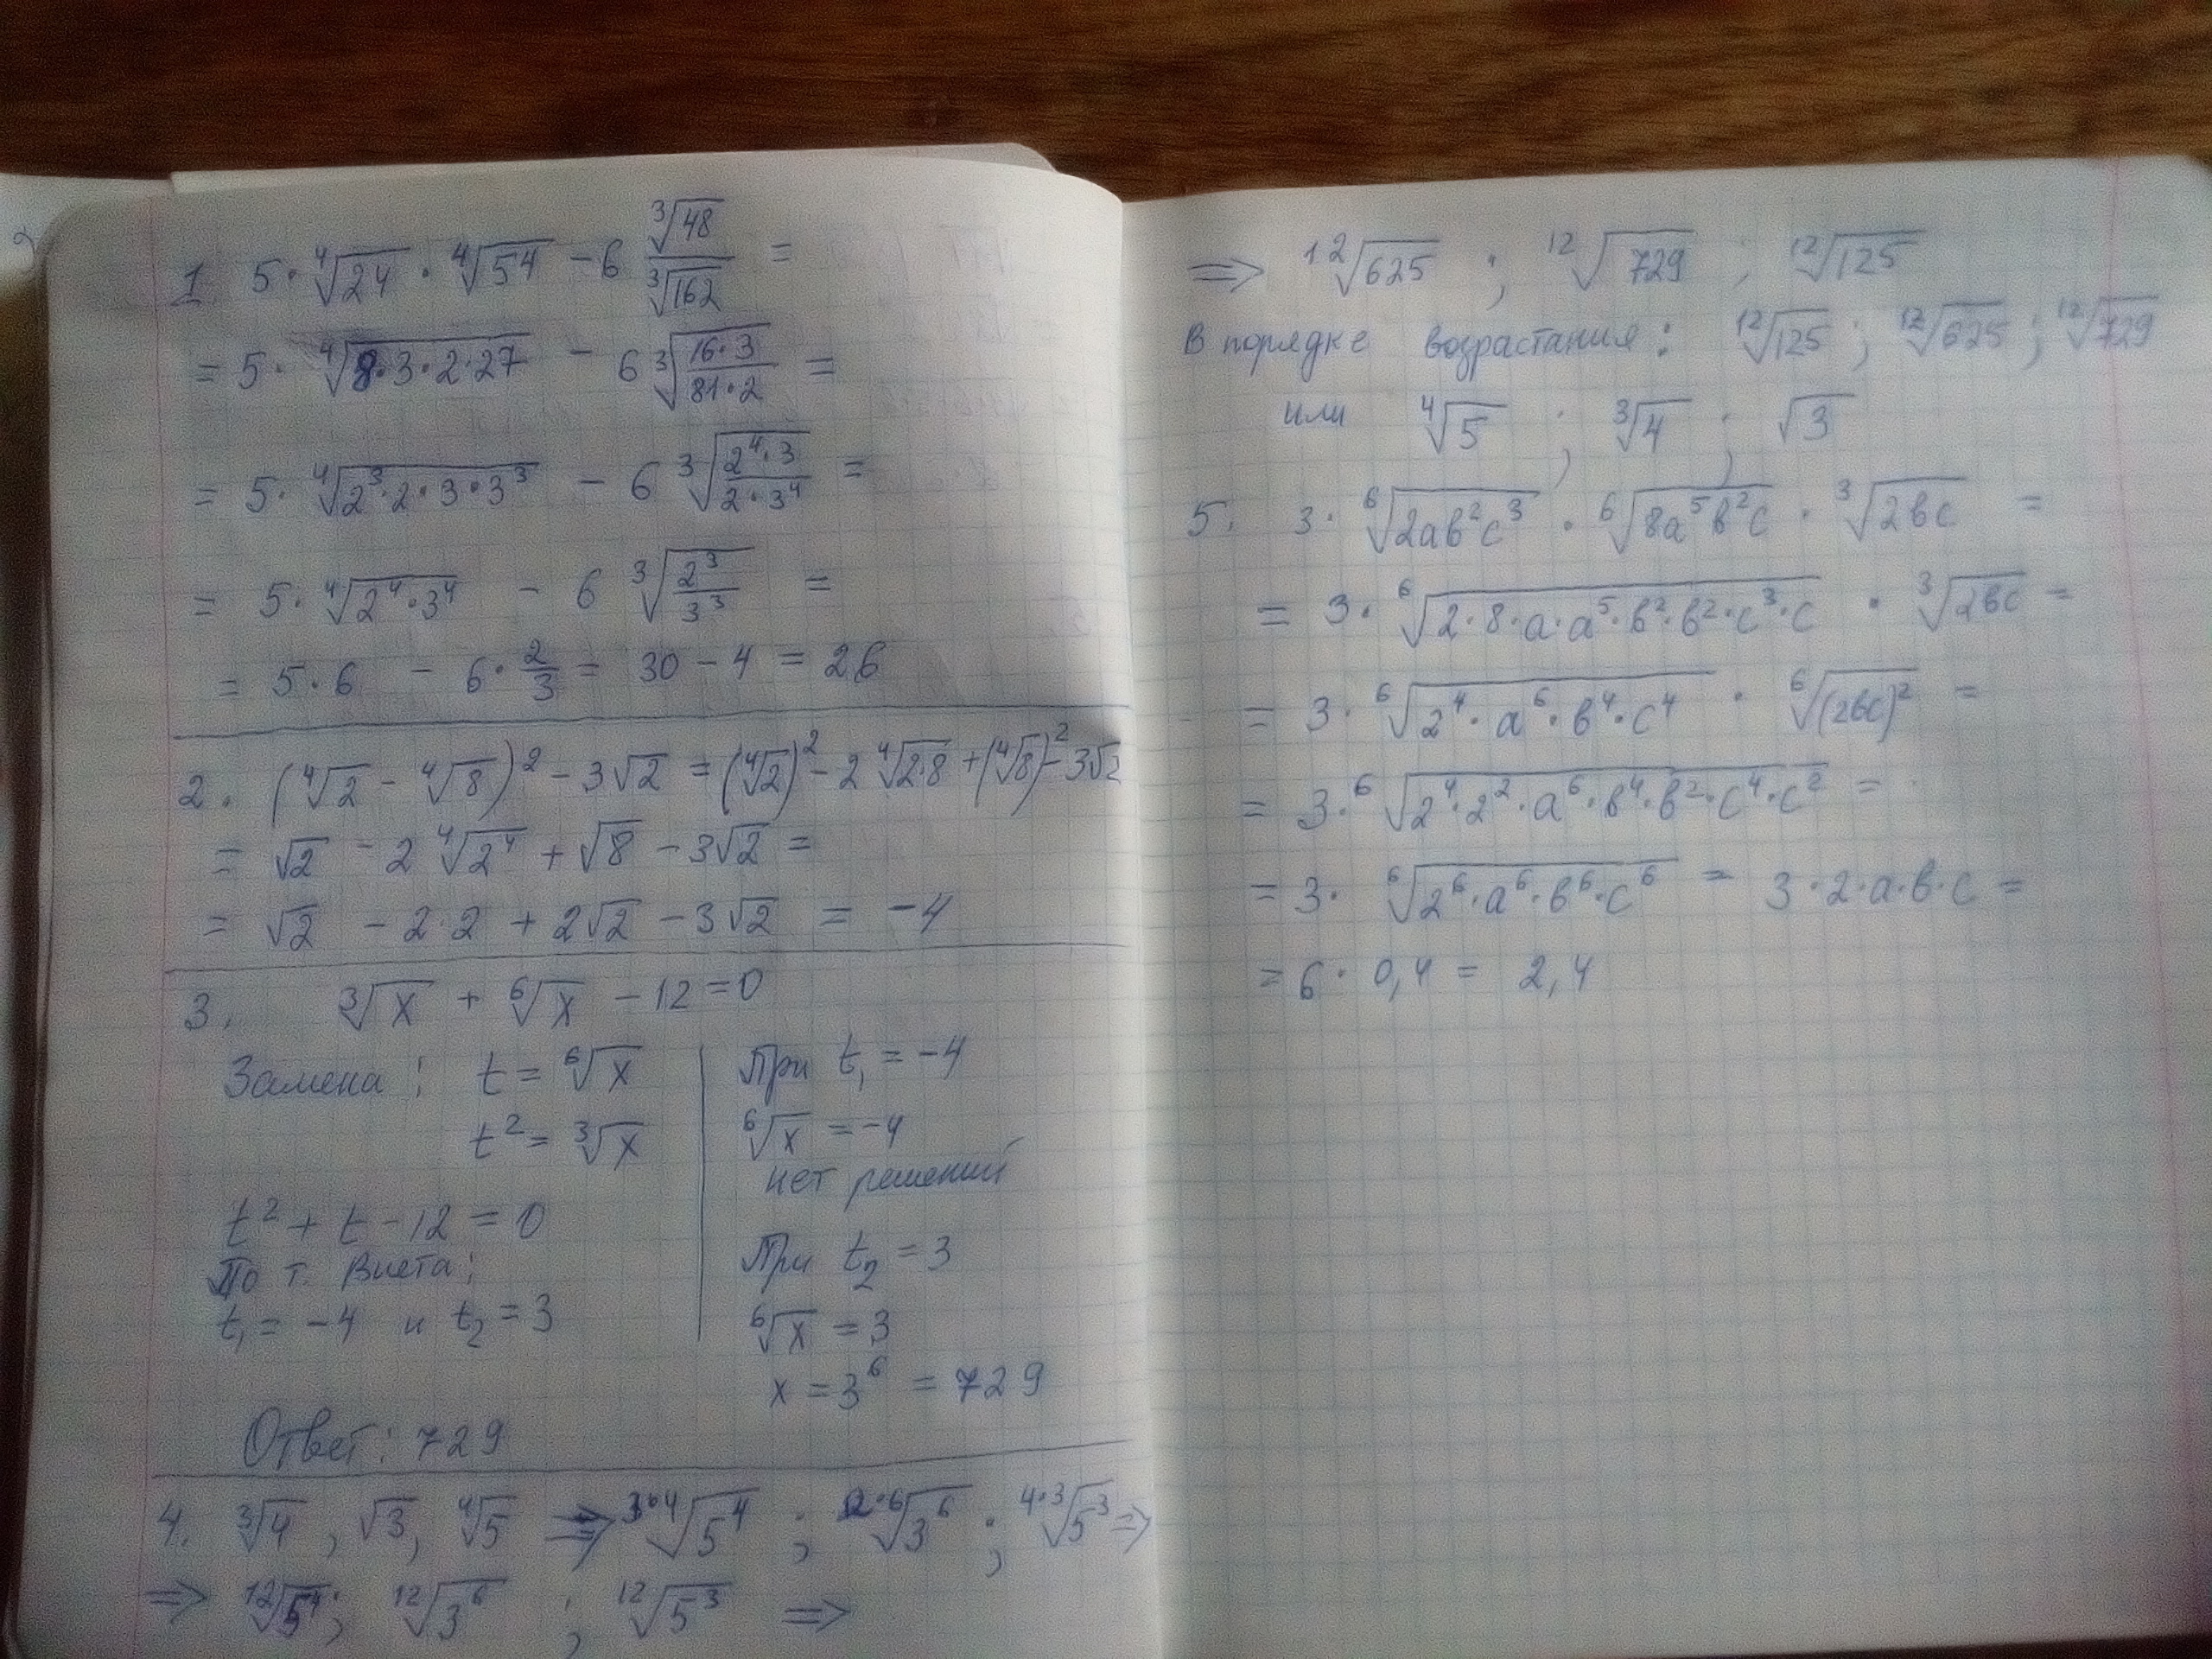 1. 5·⁴√24 · ⁴√54 − 6 ³√48/³√162 =
= 5· ⁴√(8·3·2·27) − 6 ³√((16·3)/(81·2)) =
= 5· ⁴√(2³·2·3·3³) − 6 ³√((2⁴·3)/(2·3⁴)) =
= 5· ⁴√(2⁴·3⁴) − 6 ³√(2³/3³) =
= 5·6 − 6·2/3 = 30 − 4 = 26
2. (⁴√2 − ⁴√8)² − 3√2 = (⁴√2)² − 2 ⁴√(2·8) + (⁴√8)² − 3√2
= √2 − 2 ⁴√(2⁴) + √8 − 3√2 =
= √2 − 2·2 + 2√2 − 3√2 = −4
3. ³√x + ⁶√x − 12 = 0
Замена: t = ⁶√x
t² = ³√x
t² + t − 12 = 0
По т. Виета:
t₁ = −4 и t₂ = 3
При t₁ = −4
⁶√x = −4
нет решений
При t₂ = 3
⁶√x = 3
x = 3⁶ = 729
Ответ: 729
4. ³√4, √3, ⁴√5 ⇒ ³·⁴√(5⁴) ; ²·⁶√(3⁶) ; ⁴·³√(5³) ⇒
⇒ ¹²√(5⁴); ¹²√(3⁶) ; ¹²√(5³) ⇒
⇒ ¹²√625 ; ¹²√729 ; ¹²√125
В порядке возрастания: ¹²√125 ; ¹²√625 ; ¹²√729
или ⁴√5 ; ³√4 ; √3
5. 3· ⁶√(2ав²с³) · ⁶√(8а⁵в²с) · ³√(2вс) =
= 3· ⁶√(2·8·а·а⁵·в²·в²·с³·с) · ³√(2вс) =
= 3· ⁶√(2⁴·а⁶·в⁴·с⁴) · ⁶√((2вс)²) =
= 3· ⁶√(2⁴·2²·а⁶·в⁴·в²·с⁴·с²) =
= 3· ⁶√(2⁶·а⁶·в⁶·с⁶) = 3·2·а·в·с =
= 6· 0,4 = 2,4